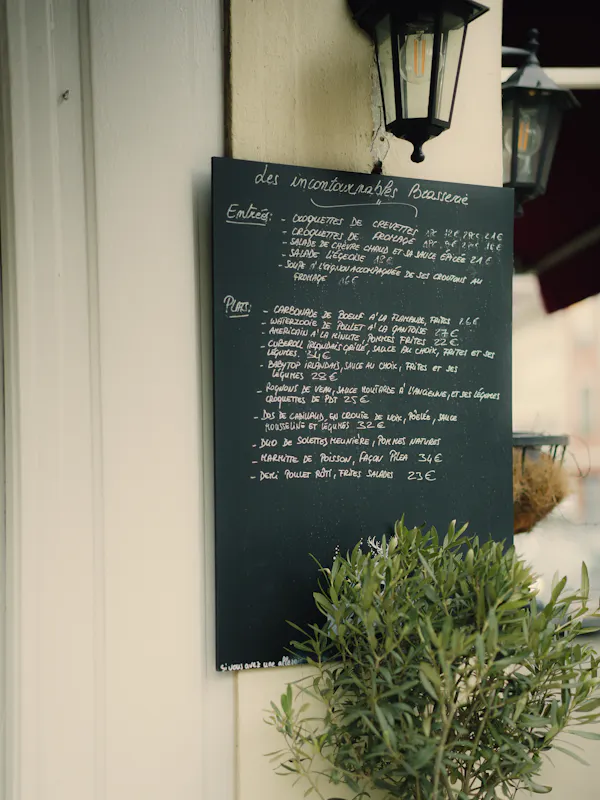 Les incontournables Brasserie
Entrées: - CROQUETTES DE CREVETTES 21€
- CROQUETTES DE FROMAGE
- SALADE DE CHÈVRE CHAUD ET SA SAUCE ÉPICÉE 21€
- SALADE LIÉGEOISE 18€
- SOUPE À L'OIGNON ACCOMPAGNÉE DE SES CROUTONS AU
FROMAGE 16€
PLATS:
- CARBONADE DE BOEUF À LA FLAMANDE, FRITES 26€
- WATERZOOIE DE POULET À LA GANTOISE 27€
- AMERICAIN À LA MINUTE, POMMES FRITES 22€
- CUBEROLL IRLANDAIS GRILLÉ, SAUCE AU CHOIX, FRITES ET SES
LÉGUMES 34€
- BABYTOP IRLANDAIS, SAUCE AU CHOIX, FRITES ET SES
LÉGUMES 28€
- ROGNONS DE VEAU, SAUCE MOUTARDE À L'ANCIENNE, ET SES LÉGUMES
CROQUETTES DE PDT 25€
- DOS DE CABILLAUD, EN CROUTE DE NOIX, POÊLÉE, SAUCE
MOUSSELINE ET LÉGUMES 32€
- DUO DE SOLETTES MEUNIÈRE, POMMES NATURES
- MARMITTE DE POISSON, FAÇON PILEA 34€
- DEMI POULET RÔTI, FRITES SALADES 23€
si vous avez une